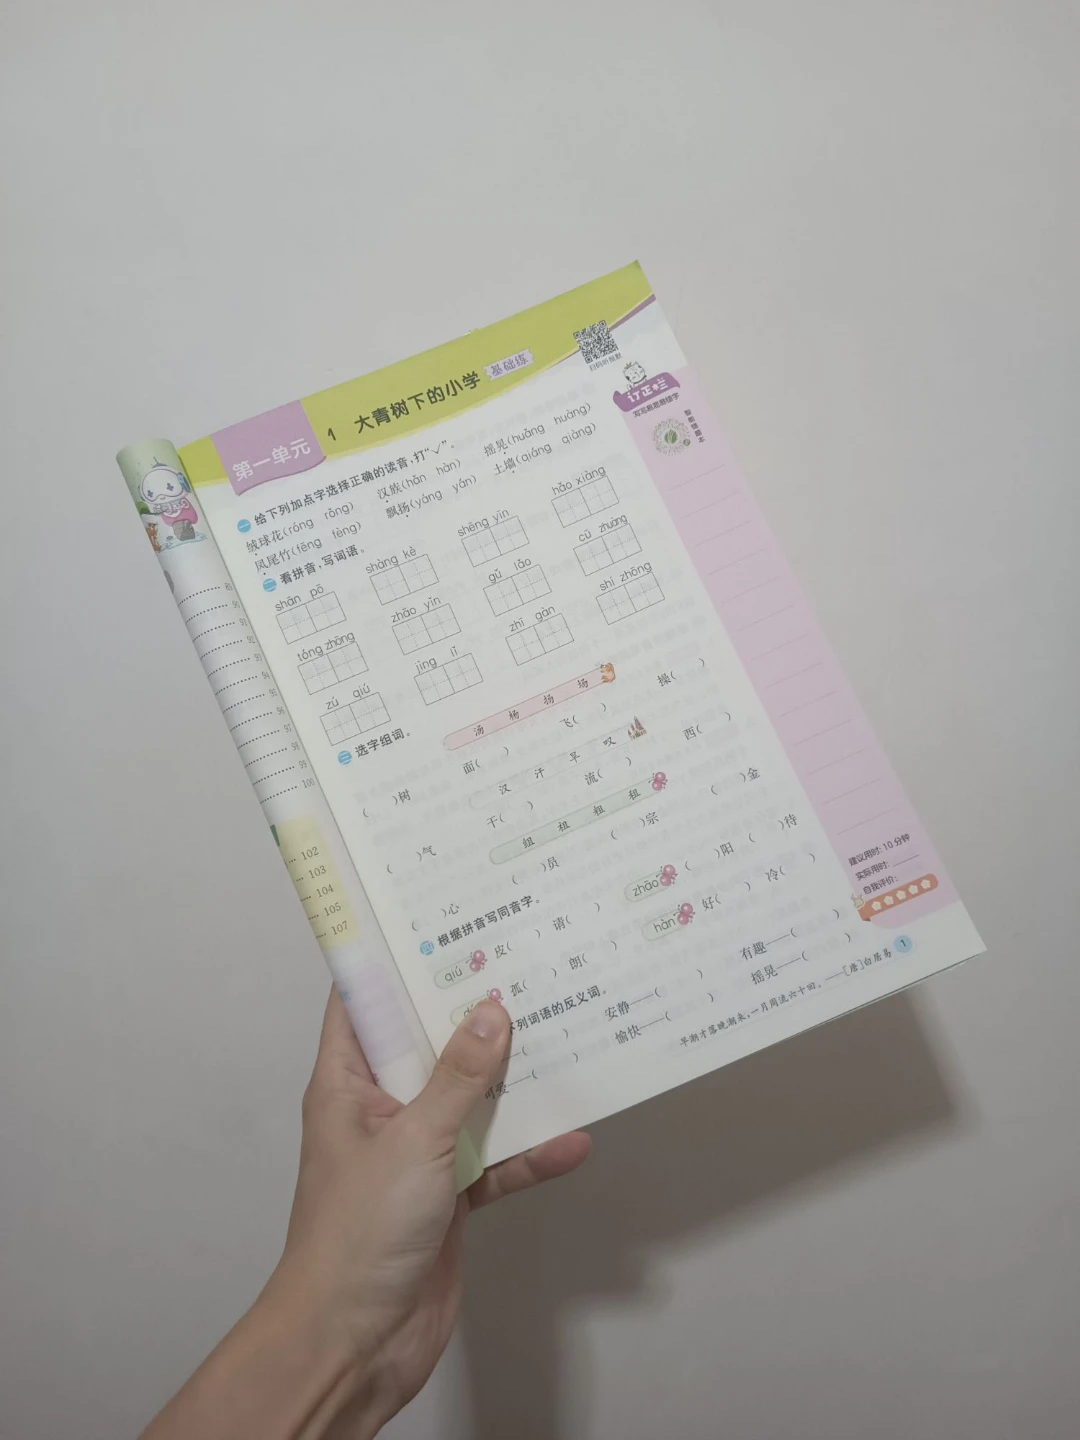 第一单元
1 大青树下的小学 基础练
扫码听报默
订正栏
写写易混易错字
一 给下列加点字选择正确的读音,打“✓”。
绒球花(róng rǒng) 汉族(hān hàn) 摇晃(huǎng huàng)
凤尾竹(fēng fèng) 飘扬(yáng yán) 土墙(qiáng qiàng)
二 看拼音,写词语。
shān pō shàng kè shēng yīn hǎo xiàng
tóng zhōng zhāo yǐn gǔ lǎo cū zhuàng
zú qiú jìng lǐ zhī gàn shì zhōng
三 选字组词。
汤 杨 扬 场
( )树 面( ) 飞( ) 操( )
汉 汗 早 叹
( )气 干( ) 流( ) 西( )
组 祖 粗 租
( )心 ( )员 ( )宗 ( )金
四 根据拼音写同音字。
qiú 皮( ) 请( ) zhāo ( )阳 ( )待
孤( ) 朗( ) hàn 好( ) 冷( )
列词语的反义词。
——( ) 安静——( ) 有趣——( )
可爱——( ) 愉快——( ) 摇晃——( )
建议用时:10分钟
实际用时:
自我评价:
早潮才落晚潮来,一月周流六十回。——[唐]白居易 1
89
90
91
92
93
94
95
96
97
98
99
100
102
103
104
105
107